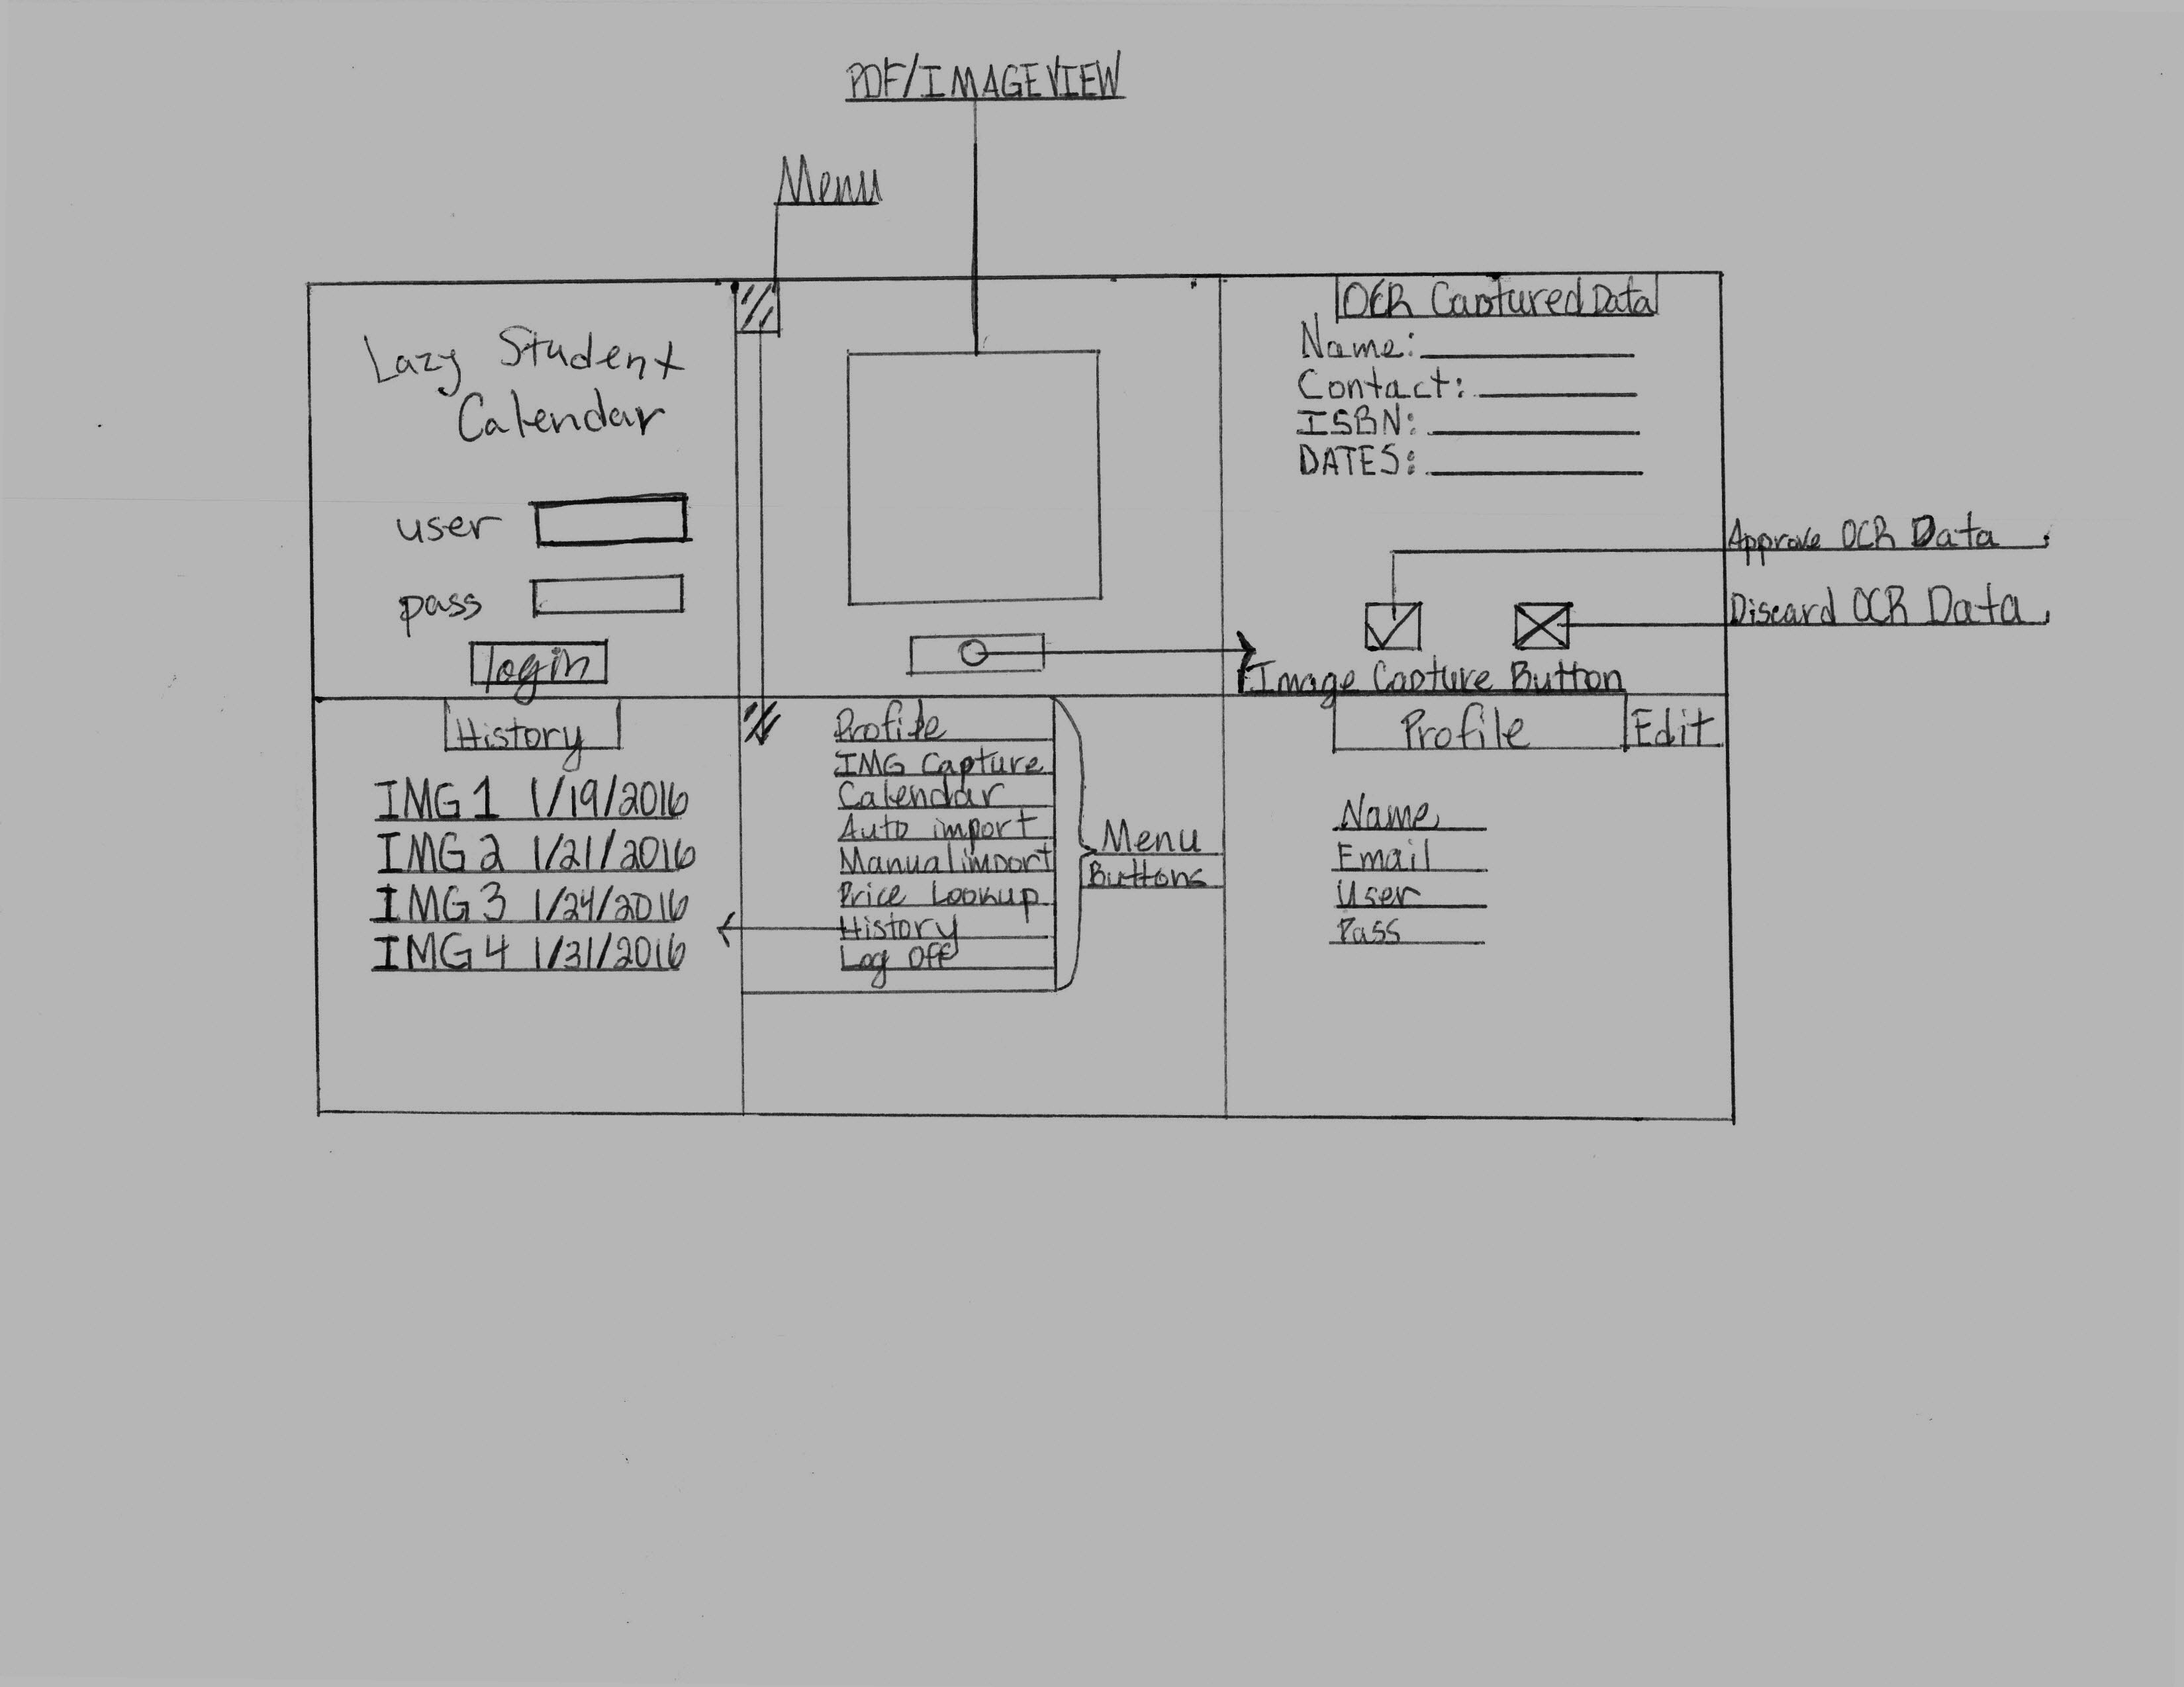 PDF/IMAGEVIEW
Menu
Lazy Student
Calendar
user
pass
login
OCR Captured Data
Name:
Contact:
ISBN:
DATES:
Approve OCR Data
Discard OCR Data
Image Capture Button
History
IMG 1 1/19/2016
IMG 2 1/21/2016
IMG 3 1/24/2016
IMG 4 1/31/2016
Profile
IMG Capture
Calendar
Auto import
Manual import
Price Lookup
History
Log Off
Menu
Buttons
Profile
Edit
Name
Email
User
Pass